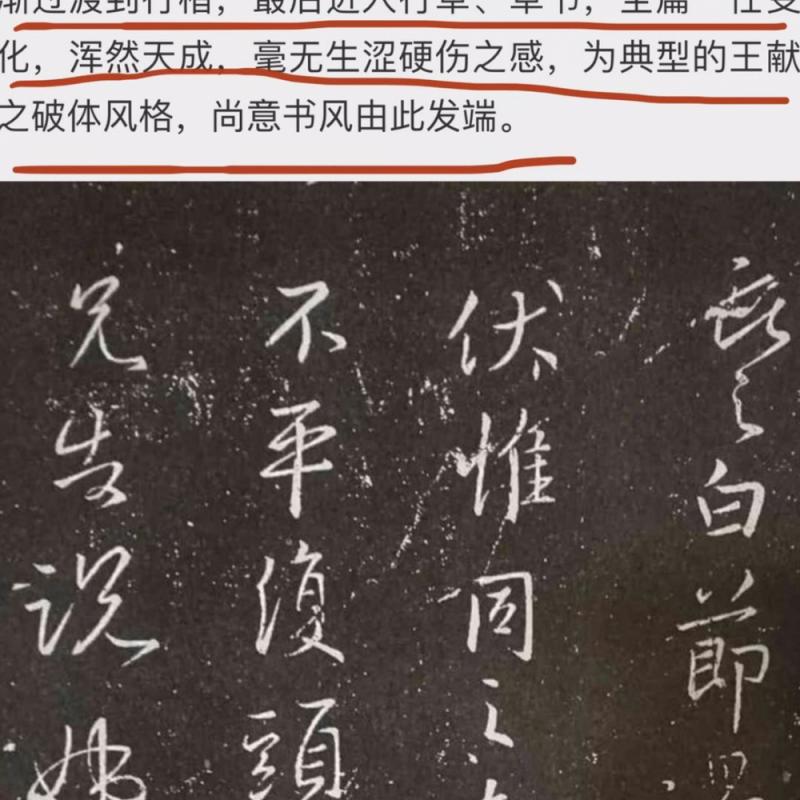 渐过渡到行楷，最后进入行草、草书，全篇一任变
化，浑然天成，毫无生涩硬伤之感，为典型的王献
之破体风格，尚意书风由此发端。
之白節
伏惟同之
不平復頭
兄告説